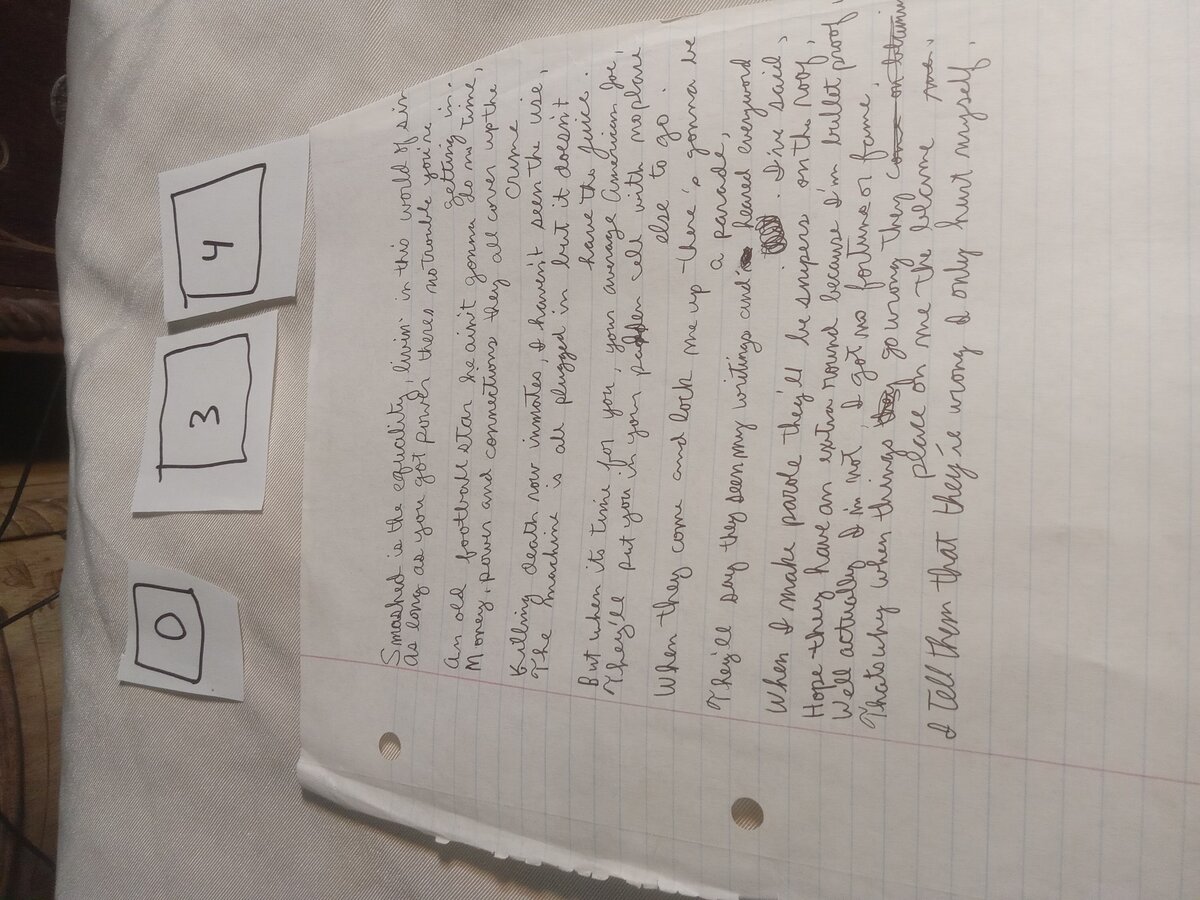 0
3
4
Smashed is the equality, livin' in this world of sin
as long as you got power theres no trouble you're
getting in.
An old football star he ain't gonna do no time,
Money, power and connections they all cover up the
crime
Killing death row inmates, I haven't seen the use,
The machine is all plugged in but it doesn't
have the juice.
But when its time for you, your average American Joe,
They'll put you in your padden cell with no place
else to go.
When they come and lock me up there's gonna be
a parade,
They'll say they seen my writings and heared everyword
I've said,
When I make parole they'll be snipers on the roof,
Hope they have an extra round because I'm bullet proof
Well actually I'm not I got no fortune or fame.
Thats why when things go wrong they
place on me the blame
I Tell them that they're wrong I only hurt myself.